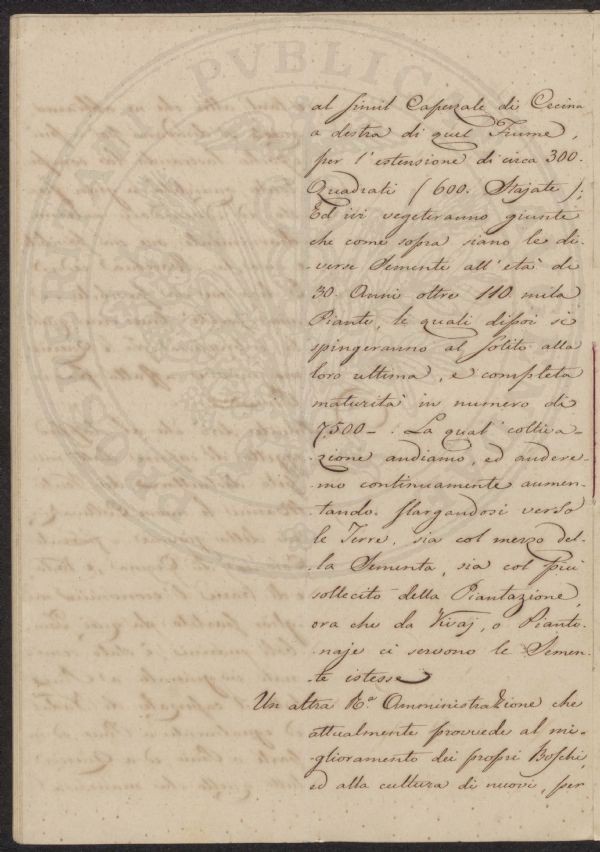 al simil Caperale di Cecina
a destra di quel Fiume,
per l'estensione di circa 300.
Quadrati (600. Stajate);
Ed ivi vegeteranno giunte
che come sopra siano le di-
-verse Semente all'età di
30. Anni oltre 110 mila
Piante, le quali dippoi si
spingeranno al solito alla
loro ultima, e completa
maturità in numero di
7500_. La qual' coltiva-
-zione andiamo, ed andere-
-mo continuamente aumen-
-tando. slargandosi verso
le Terre, sia col mezzo del-
-la Sementa, sia col più
sollecito della Piantazione,
ora che da Vivaj, o Pianto-
-naje ci servono le Semen-
-te istesse
Un altra R.ª Amministrazione che
attualmente provvede al mi-
-glioramento dei proprj Boschi,
ed alla cultura di nuovi, per
PVBLICA